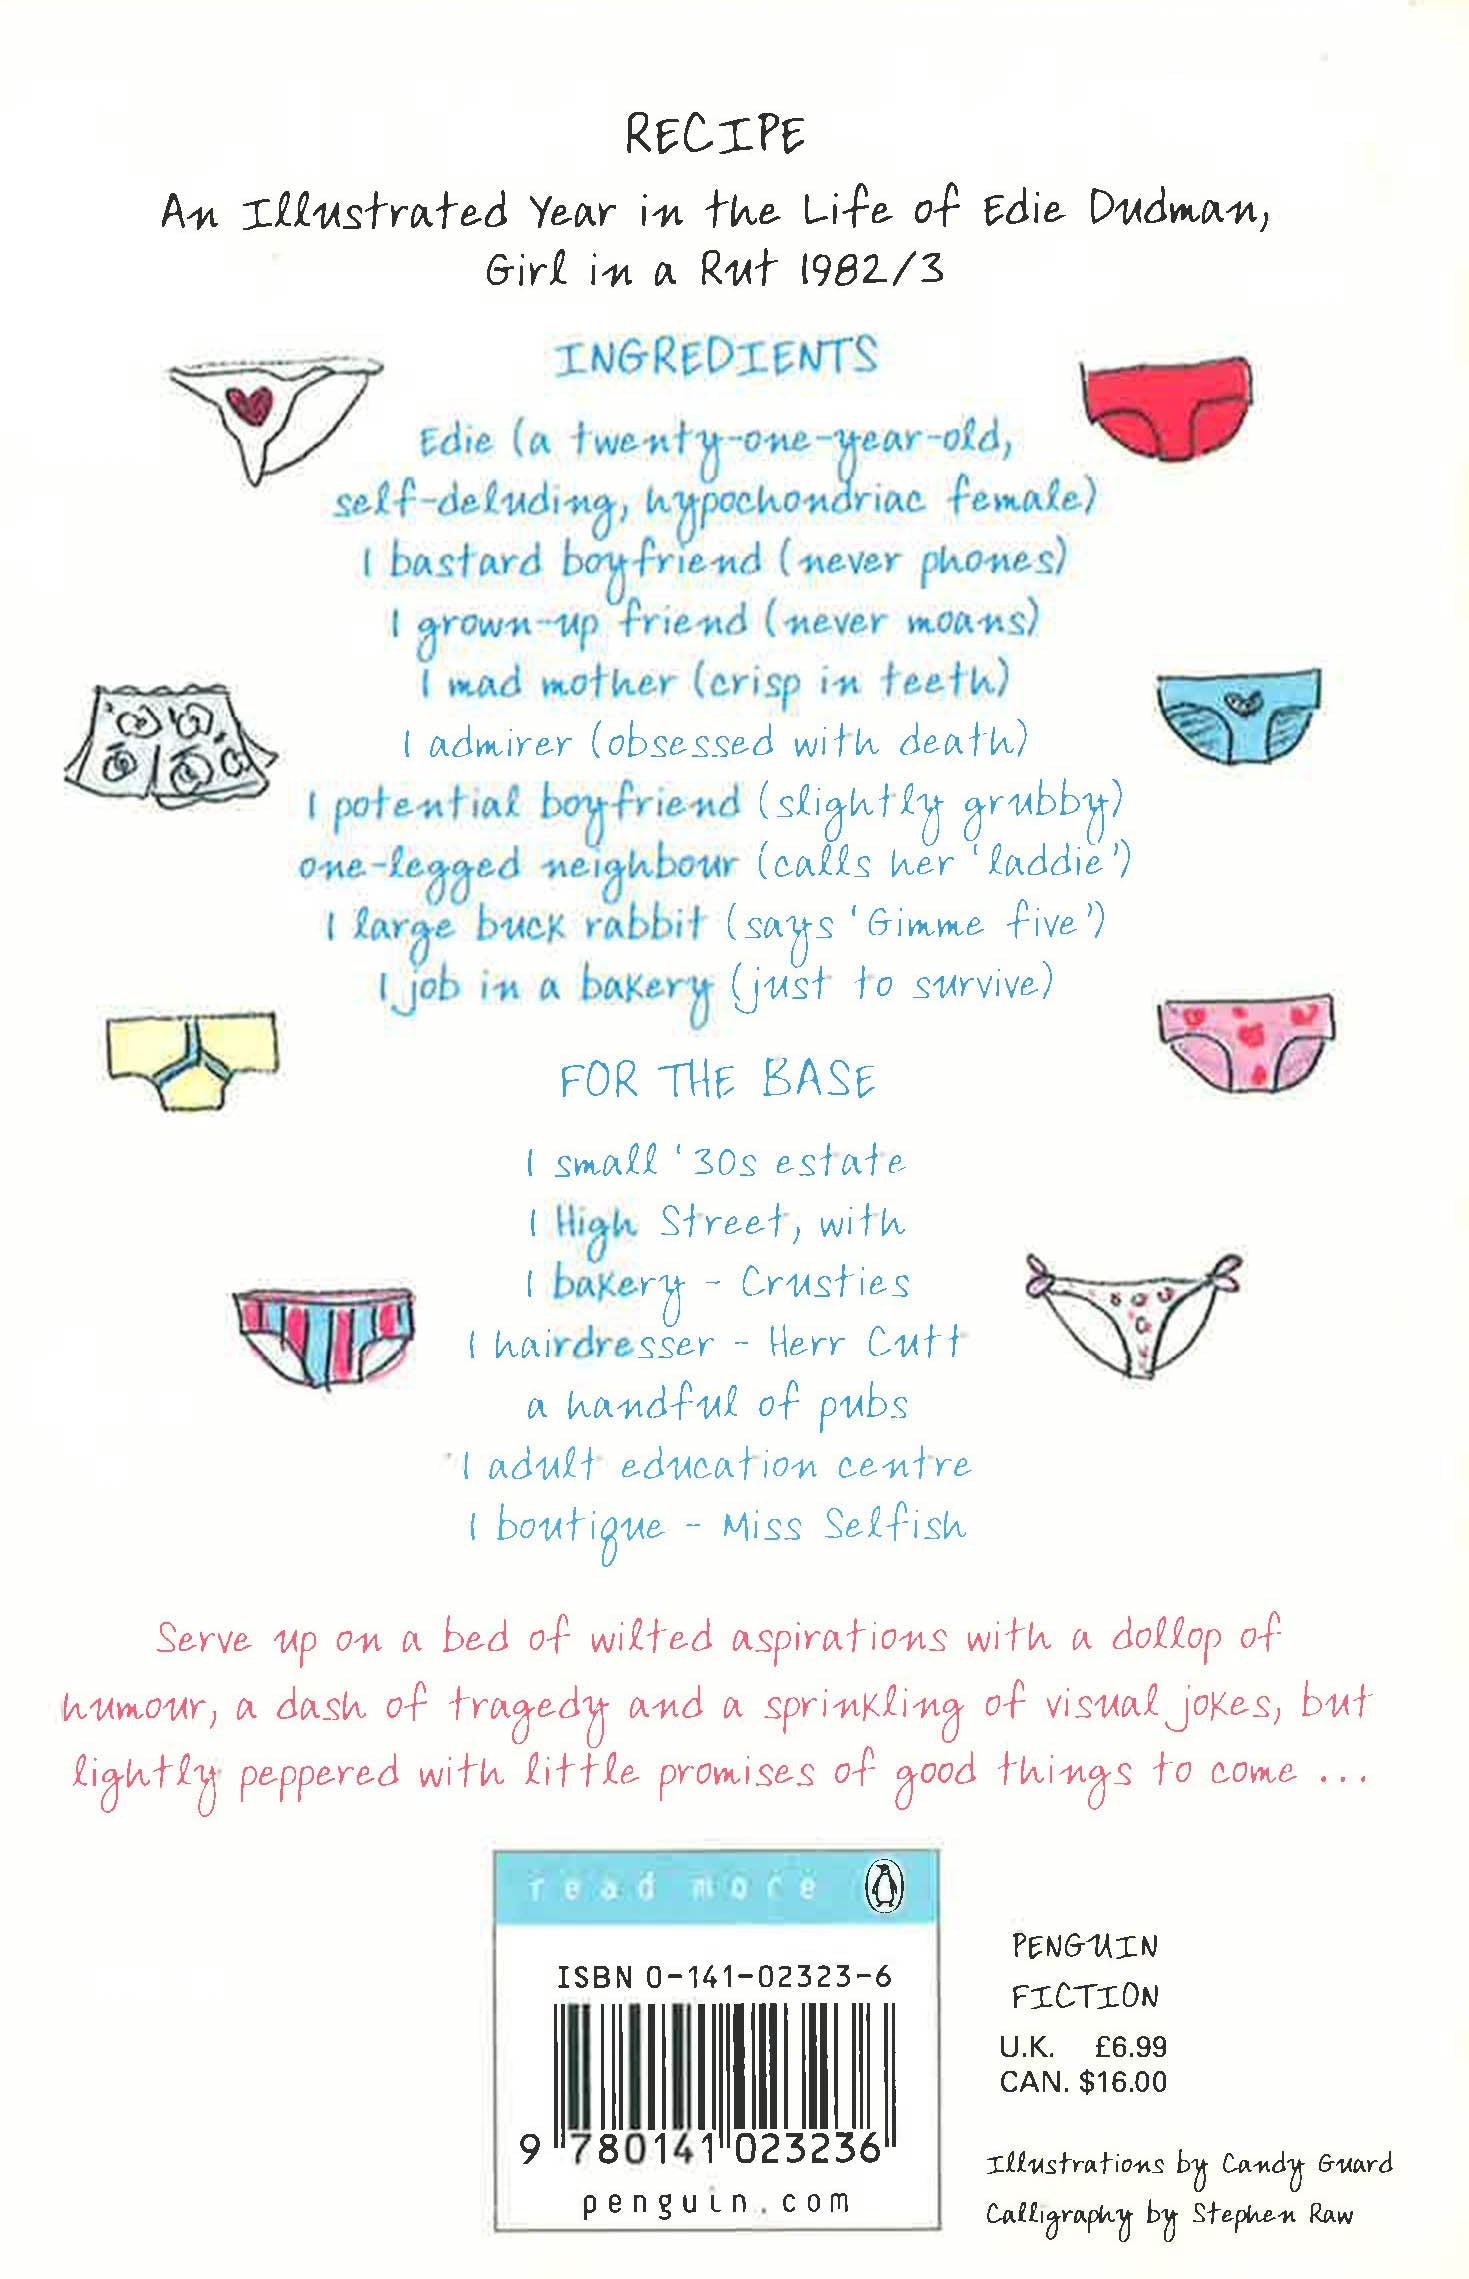 RECIPE
An Illustrated Year in the Life of Edie Dudman,
Girl in a Rut 1982/3
INGREDIENTS
Edie (a twenty-one-year-old,
self-deluding, hypochondriac female)
1 bastard boyfriend (never phones)
1 grown-up friend (never moans)
1 mad mother (crisp in teeth)
1 admirer (obsessed with death)
1 potential boyfriend (slightly grubby)
one-legged neighbour (calls her 'laddie')
1 large buck rabbit (says 'Gimme five')
1 job in a bakery (just to survive)
FOR THE BASE
1 small '30s estate
1 High Street, with
1 bakery - Crusties
1 hairdresser - Herr Cutt
a handful of pubs
1 adult education centre
1 boutique - Miss Selfish
Serve up on a bed of wilted aspirations with a dollop of
humour, a dash of tragedy and a sprinkling of visual jokes, but
lightly peppered with little promises of good things to come ...
read more
ISBN 0-141-02323-6
9 780141 023236
penguin.com
PENGUIN
FICTION
U.K. £6.99
CAN. $16.00
Illustrations by Candy Guard
Calligraphy by Stephen Raw